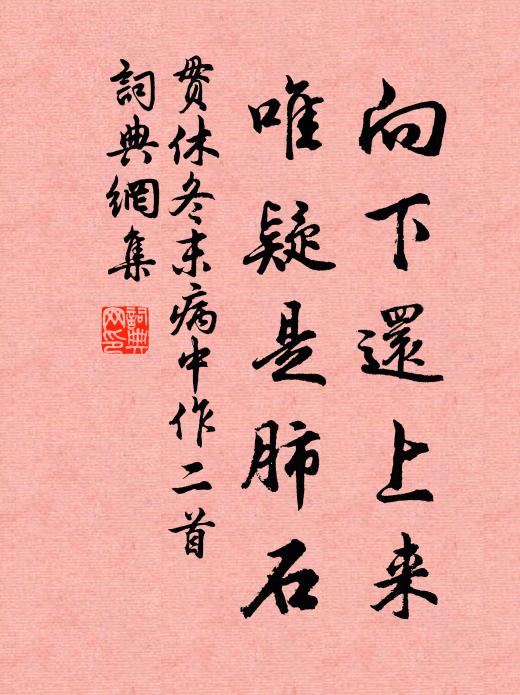 向下還上来
唯疑是肺石
貫休冬末病中作二首
詞典網集
詞典網印